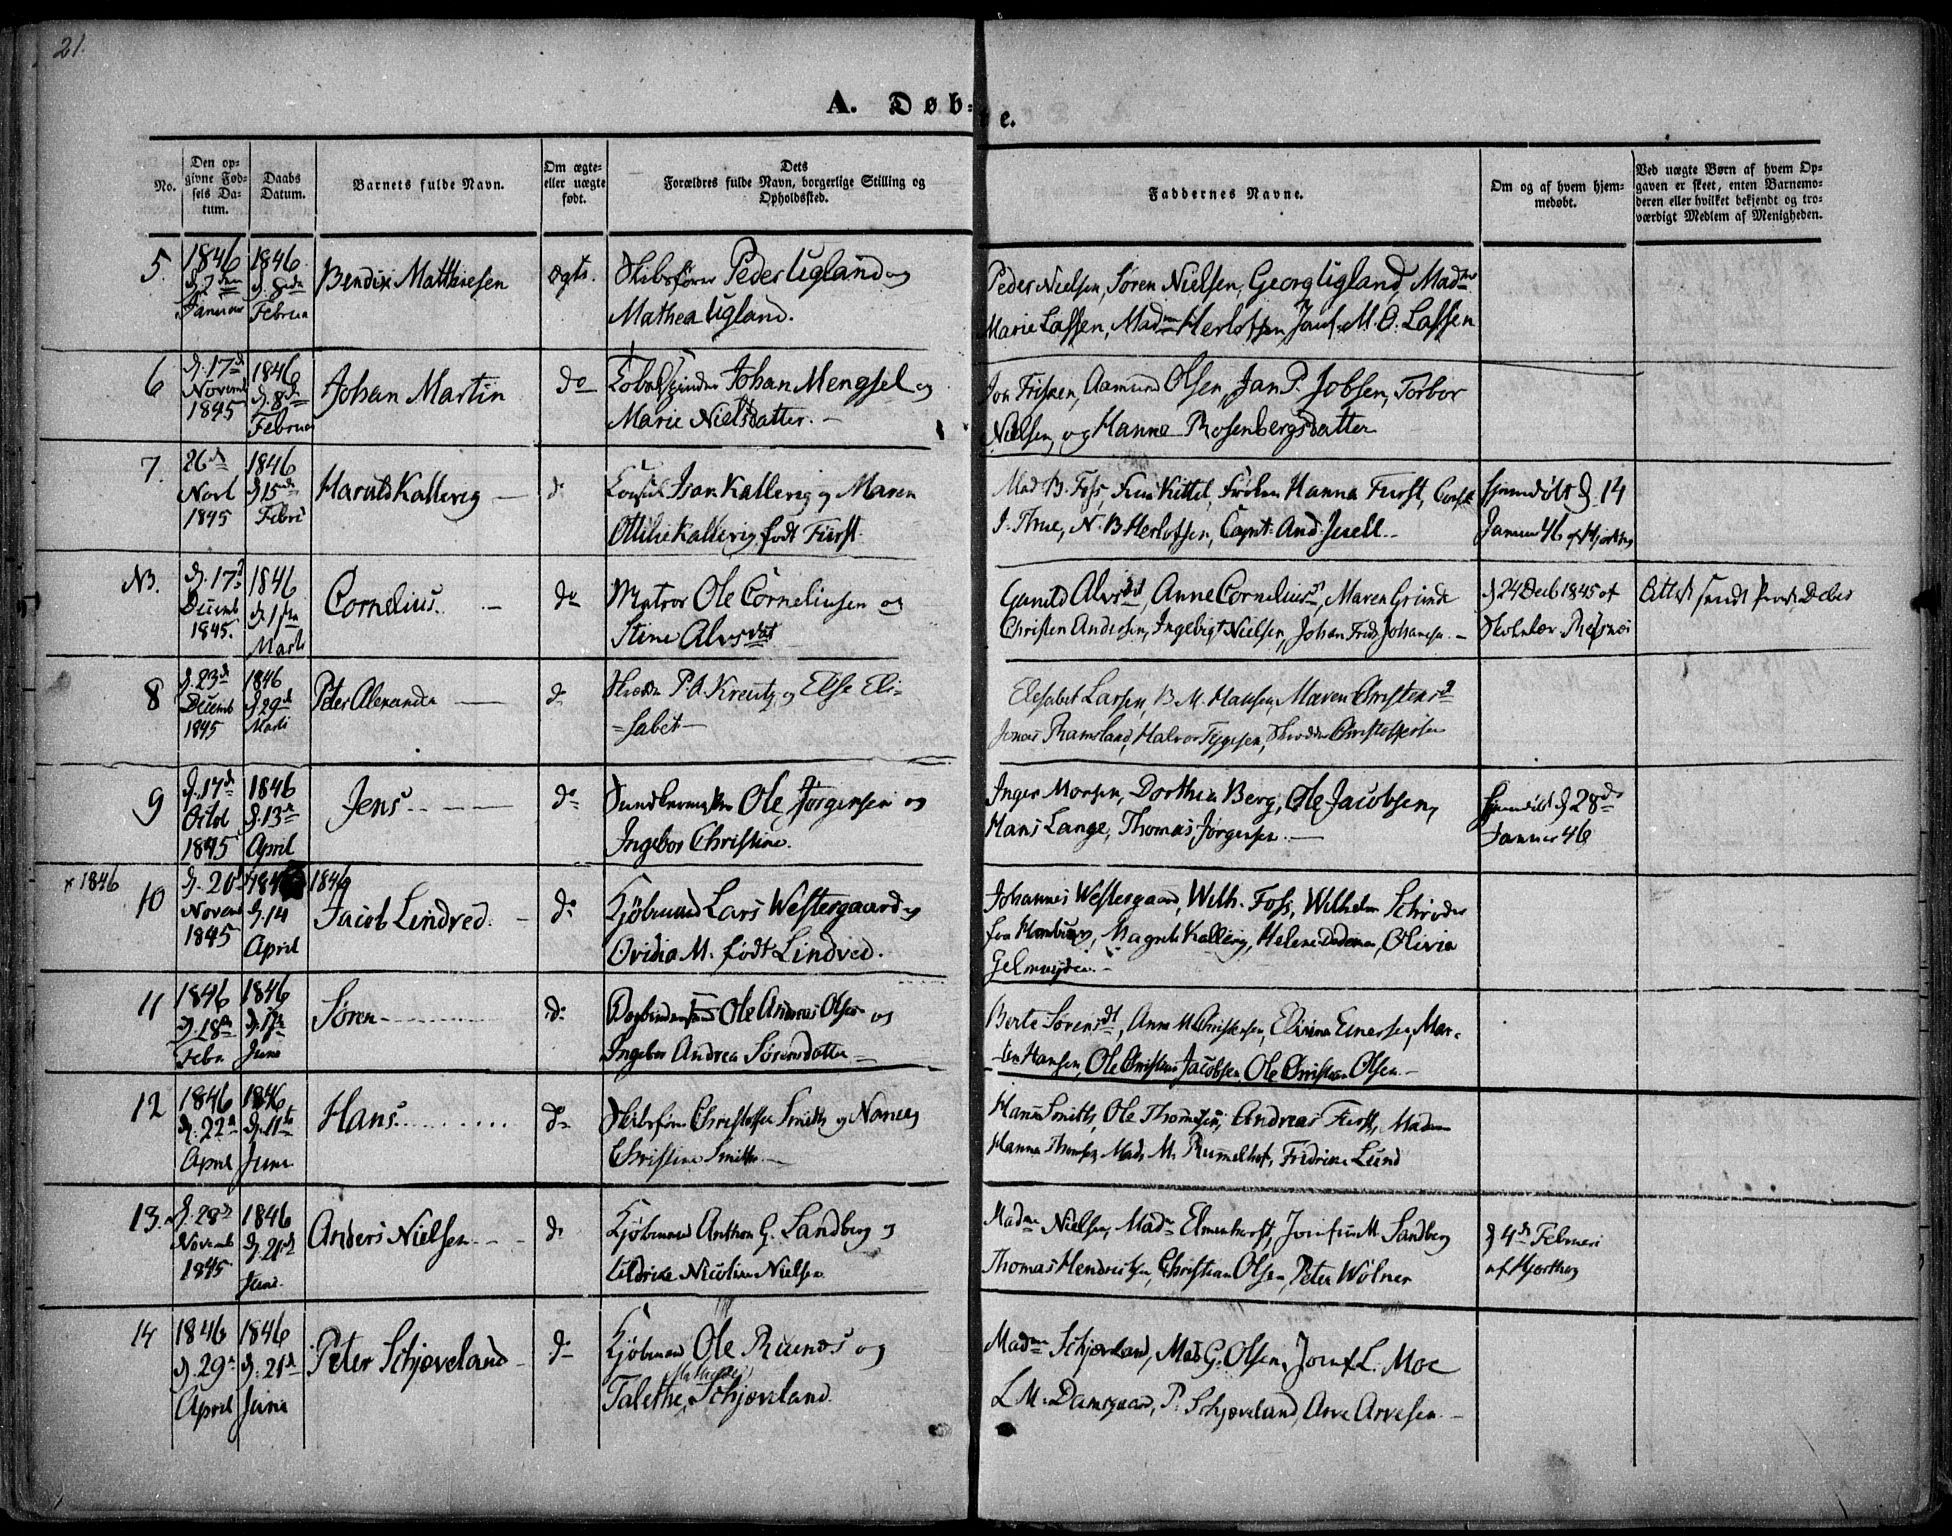 21.
A. Døb=
e.
No.
Den op=
givne Fød=
sels Da=
tum.
Daabs
Datum.
Barnets fulde Navn.
Om ægte=
eller uægte
født.
Dets
Forældres fulde Navn, borgerlige Stilling og
Opholdssted.
Faddernes Navne.
Om og af hvem hjem=
medøbt.
Ved uægte Børn af hvem Op=
gaven er skeet, enten Barnemo=
deren eller hvilket bekjendt og tro=
værdigt Medlem af Menigheden.
5.
1846
Januar
1846
d. 8de
Februar
Bendix Matthiesen
ægte.
Skibsfører Peder Ugland og
Mathea Ugland.
Peder Nielsen, Søren Nielsen, Georg Ugland, Madme
Marie Lassen, Madme Herlofsen, Jomf. M. O. Lassen
6
d. 17d
Novemb
1845
1846
d. 8de
Februar
Johan Martin
do
Johan Mengsel og
Marie Nielsdatter. —
Aamund Olsen, Jan P. Jobsen, Torbor
Nielsen, og Hanna Rosenbergsdatter
7.
26d
Novb
1845
1846
d. 15de
Febr
Harald Kallevig —
do
Consul Isak Kallevig og Maren
Ottilie Kallevig født Fürst.
Mad B. Foss, Kittel, Frøken Hanna Fürst, Consul
J. Thrue, N. B Herlofsen, Capt. And.
Hjemdøbt d. 14
Januar 46 af Hjorthøy
NB.
d. 17d
Decemb
1845.
1846
d. 1ste
Marts
Cornelius. —
do
Matros Ole Corneliusen og
Stine Alvsdat
Gunild Alvsdt, Anne Corneliusd, Maren Grinde
Christen Andersen, Ingebrigt Nielsen, Johan Fredr. Johansen. —
d 24 Decb 1845 af
Attest sendt Provst Debes
8
d. 23d
Decemb
1845
1846
d. 29d
Marts
Peter Alexander —
do
P. A. Kreutz og Else Eli=
=sabet —
Elisabet Larsen, B. M. Hansen, Maren Christensd
Jonas Ramsland, Halvor Tygesen, Christoffersen
9
d. 17d
Octob
1845
1846
d. 13de
April
Jens . . —
do
Ole Jørgensen og
Ingebor Christine.
Inger Morsen, Dorthea Berg, Ole Jacobsen,
Hans Lange, Thomas Jørgensen. —
Hjemdøbt d 28de
Januar 46
x 1846
10
d. 20d
Novemb
1845
1846
d. 14
April
Jacob Lindved. —
do
Kjøbmand Lars Westergaard og
Ovidia M. født Lindved.
Johannes Westergaard, Wilh. Foss, Wilhelm Schrøder
fra Hamburg, Magrete Kallevig, Helene Dedekam, Olivia
Gelmuyden. —
11
1846
d. 18de
Febr
1846
d. 1ste
June
Søren . . . .
do
Bogbinder Ole Andreas Olsen og
Ingebor Andrea Sørensdatter —
Berte Sørensdt, Anne M Christensen, Elevine Einersen, Mar=
=ten Hansen, Ole Christian Jacobsen, Ole Christian Olsen. —
12
1846
d. 22d
April
1846
d. 11te
June
Hans . . . .
do
Skibsfører Christoffer Smith og Nancy
Christine Smith. —
Hanna Smith, Ole Thomesen, Andreas Fürst, Madme
Hanna Thomsen, Mads M. Rummelhof, Fredrik Lund
13.
d. 28d
Novemb
1845
1846
d. 21d
June
Anders Nielsen . —
do
Kjøbmand Anthon G. Sandberg og
Uldrike Nicoline Nielsen
Madme Nielsen, Madme Elmenhorst, Jomfru M. Sandberg
Thomas Hendricksen, Christian Olsen, Peter Wölner
d 4d Februari
af Hjorthøy
14
1846
d. 29d
April
1846
d. 21d
June
Peter Schjøveland —
do
Kjøbmand Ole Runds og
Mathilde
Talethe, Schjøveland.
Madme Schjøveland, Mad G. Olsen, Jomf. L. Moe
L M. Damsgaard, P. Schjøveland, Arve Arvesen. —